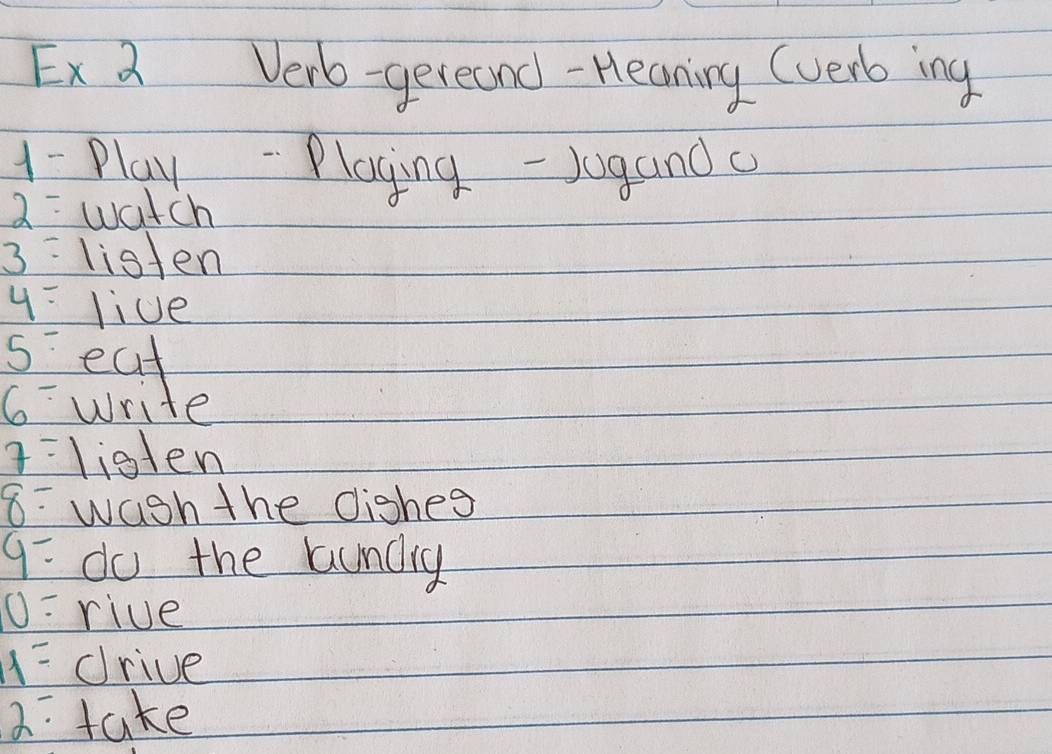 Ex 2 Verb -gereond -Meaning (verb ing
1- Play - Playing - Jugando
2- watch
3- listen
4- live
5- eat
6- write
7- listen
8- wash the dishes
9- do the laundry
10- rive
11- drive
12- take